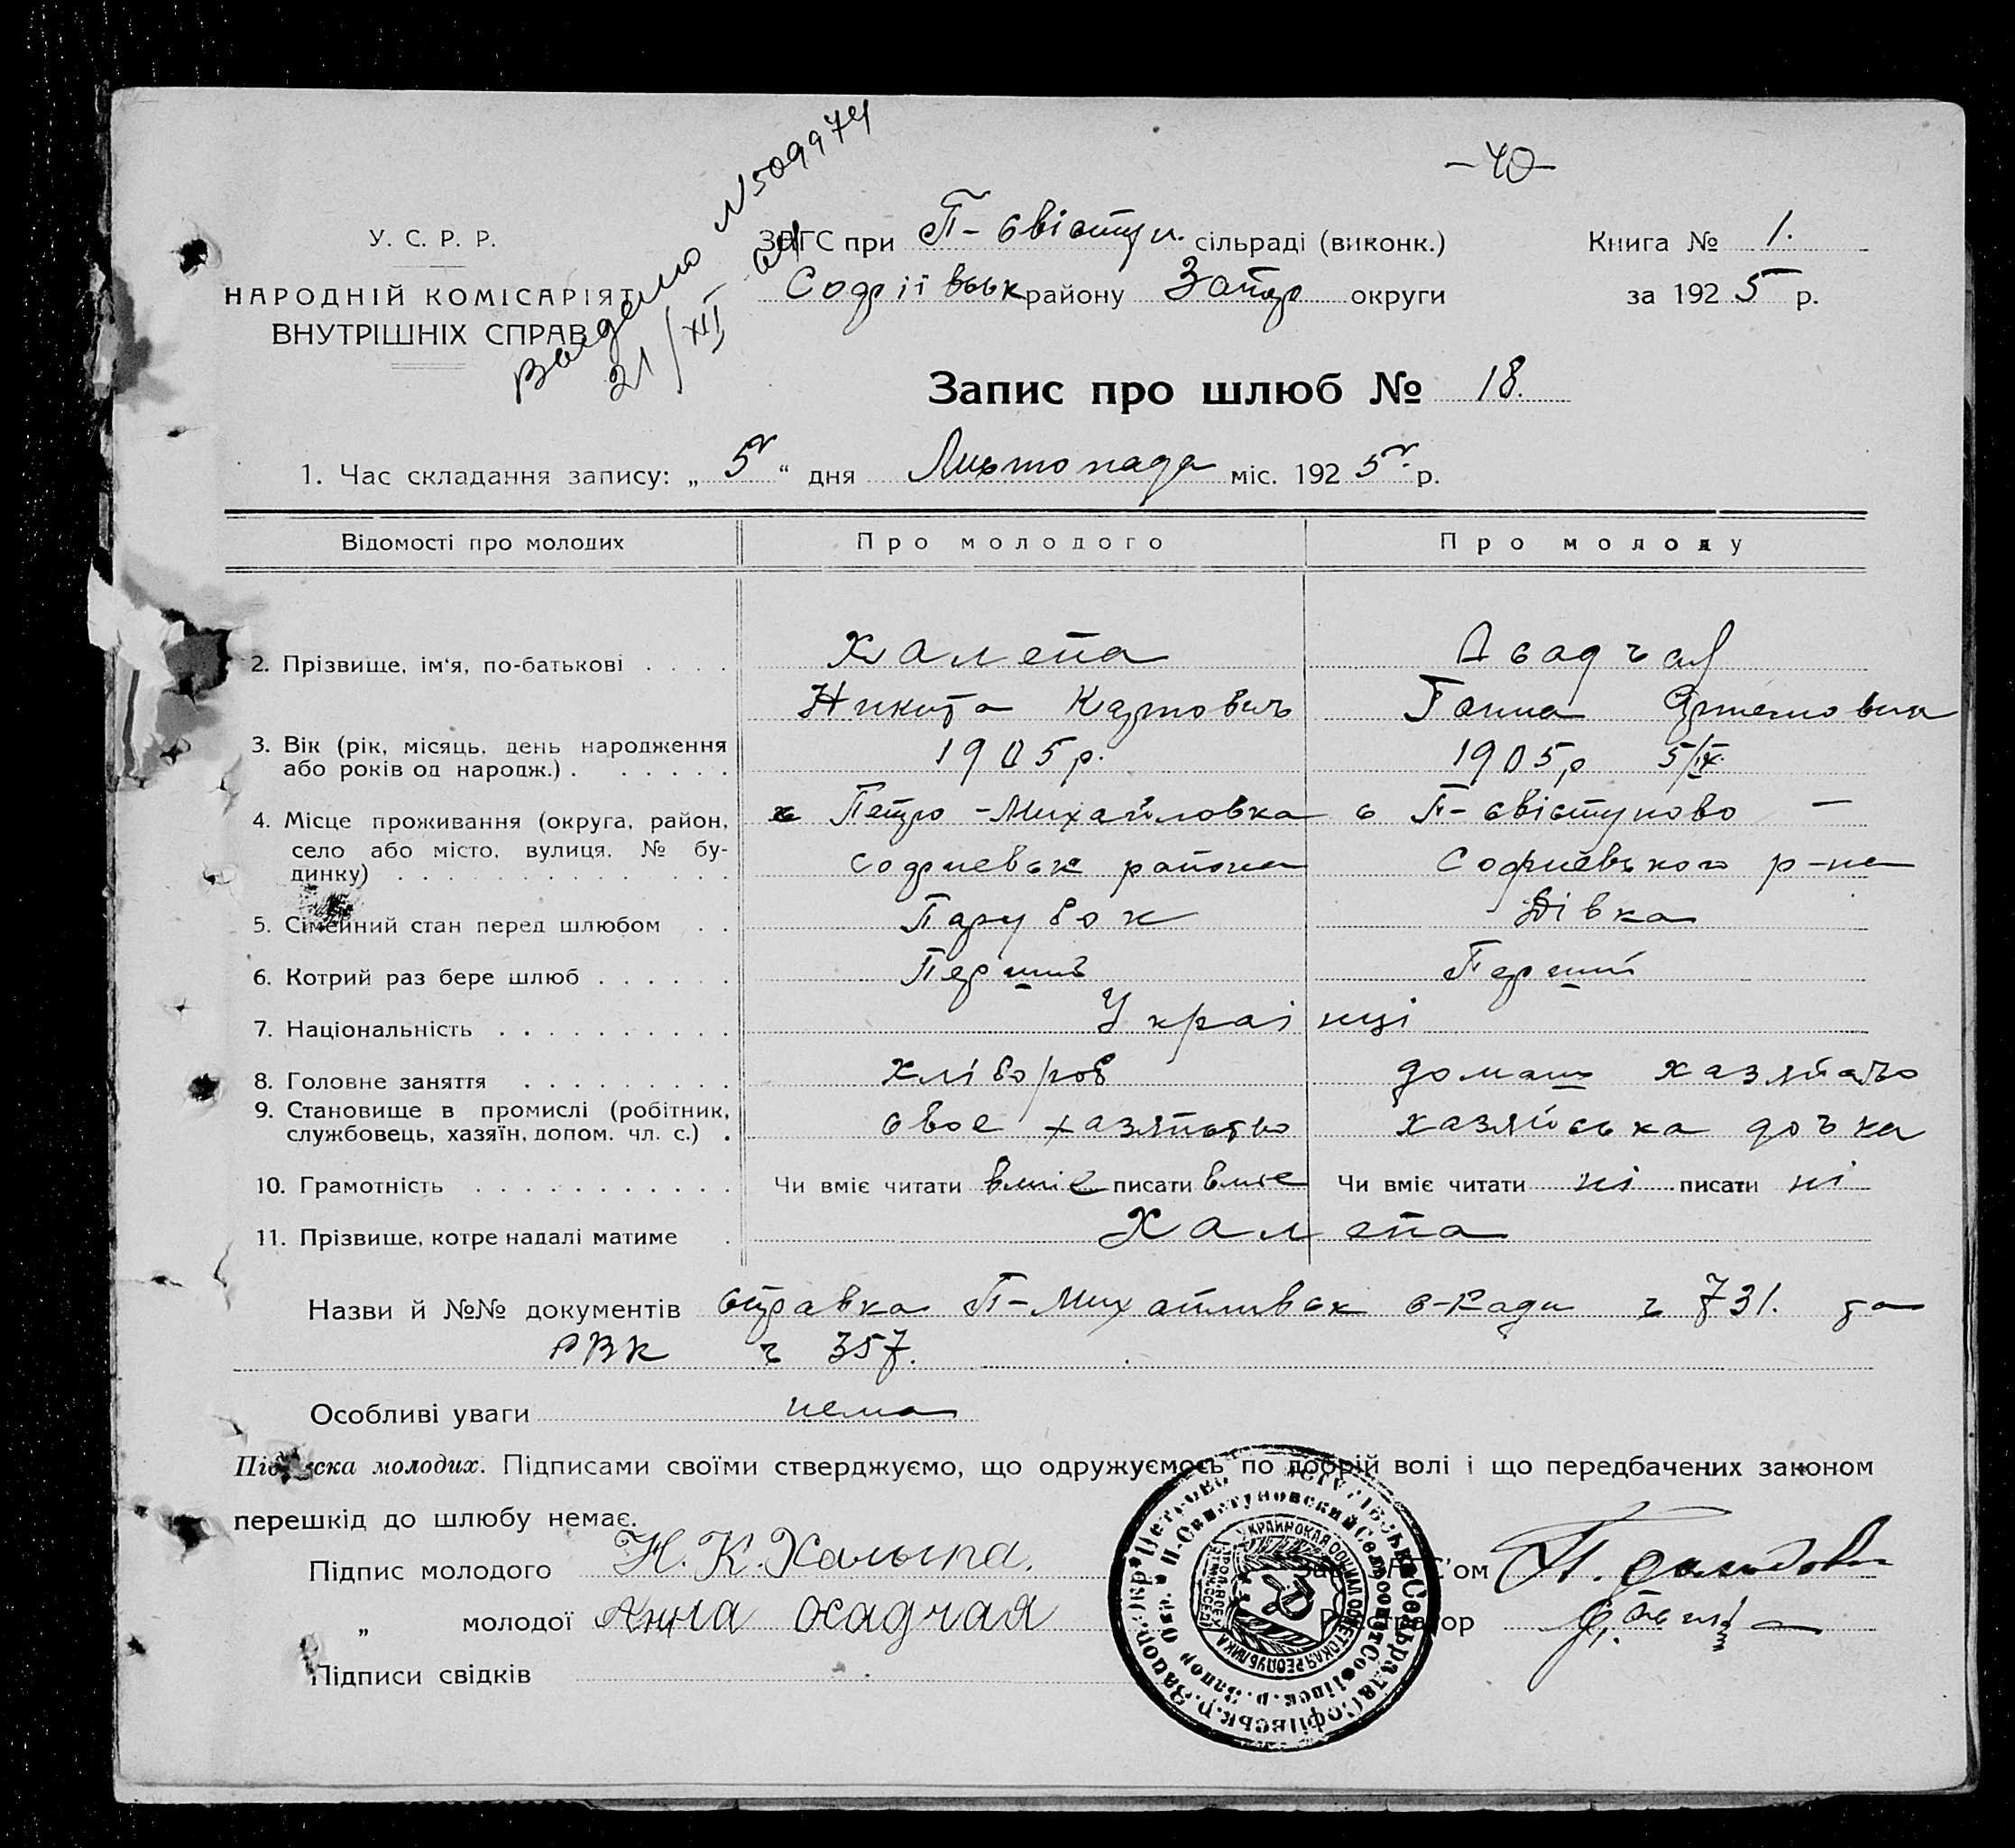 -40-
У. С. Р. Р.
НАРОДНІЙ КОМІСАРІЯТ
ВНУТРІШНІХ СПРАВ
Выдано N 509974
21/XII
ЗАГС при П- свісту. сільраді (виконк.)
Софіївськ району Запор округи
Книга № 1.
за 1925 р.
Запис про шлюб № 18.
1. Час складання запису: „ 5 “ дня Листопада міс. 1925 р.
Відомості про молодих
Про молодого
Про молоду
2. Прізвище, ім'я, по-батькові . . . .
Халепа
Никита Карпович
Осадчая
Ганна Артемовна
3. Вік (рік, місяць, день народження
або років од народж.) . . . . . .
1905 р.
1905 р 5/IX.
4. Місце проживання (округа, район,
село або місто, вулиця, № бу-
динку) . . . . . . . . . . . .
с Петро-Михайловка
Софиевськ района
с П- свістуново —
Софиевського р-на
5. Сімейний стан перед шлюбом . .
Парубок
Дівка
6. Котрий раз бере шлюб . . . . . .
Перший
Перший
7. Національність . . . . . . . . . .
Українці
8. Головне заняття . . . . . . . . .
хлібороб
домаш хазяйство
9. Становище в промислі (робітник,
службовець, хазяїн, допом. чл. с.) .
своє хазяйство
хазяйська дочка
10. Грамотність . . . . . . . . . . .
Чи вміє читати вміє писати вміє
Чи вміє читати ні писати ні
11. Прізвище, котре надалі матиме .
Халепа
Назви й №№ документів справка П-Михайливск с-Ради ч 731. та
РВК ч 357.
Особливі уваги нема
Підписка молодих. Підписами своїми стверджуємо, що одружуємось по добрій волі і що передбачених законом
перешкід до шлюбу немає.
Підпис молодого Н. К. Халыпа.
„ молодої Анна Осадчая
Підписи свідків
Зав. ЗАГС'ом
Реєстратор